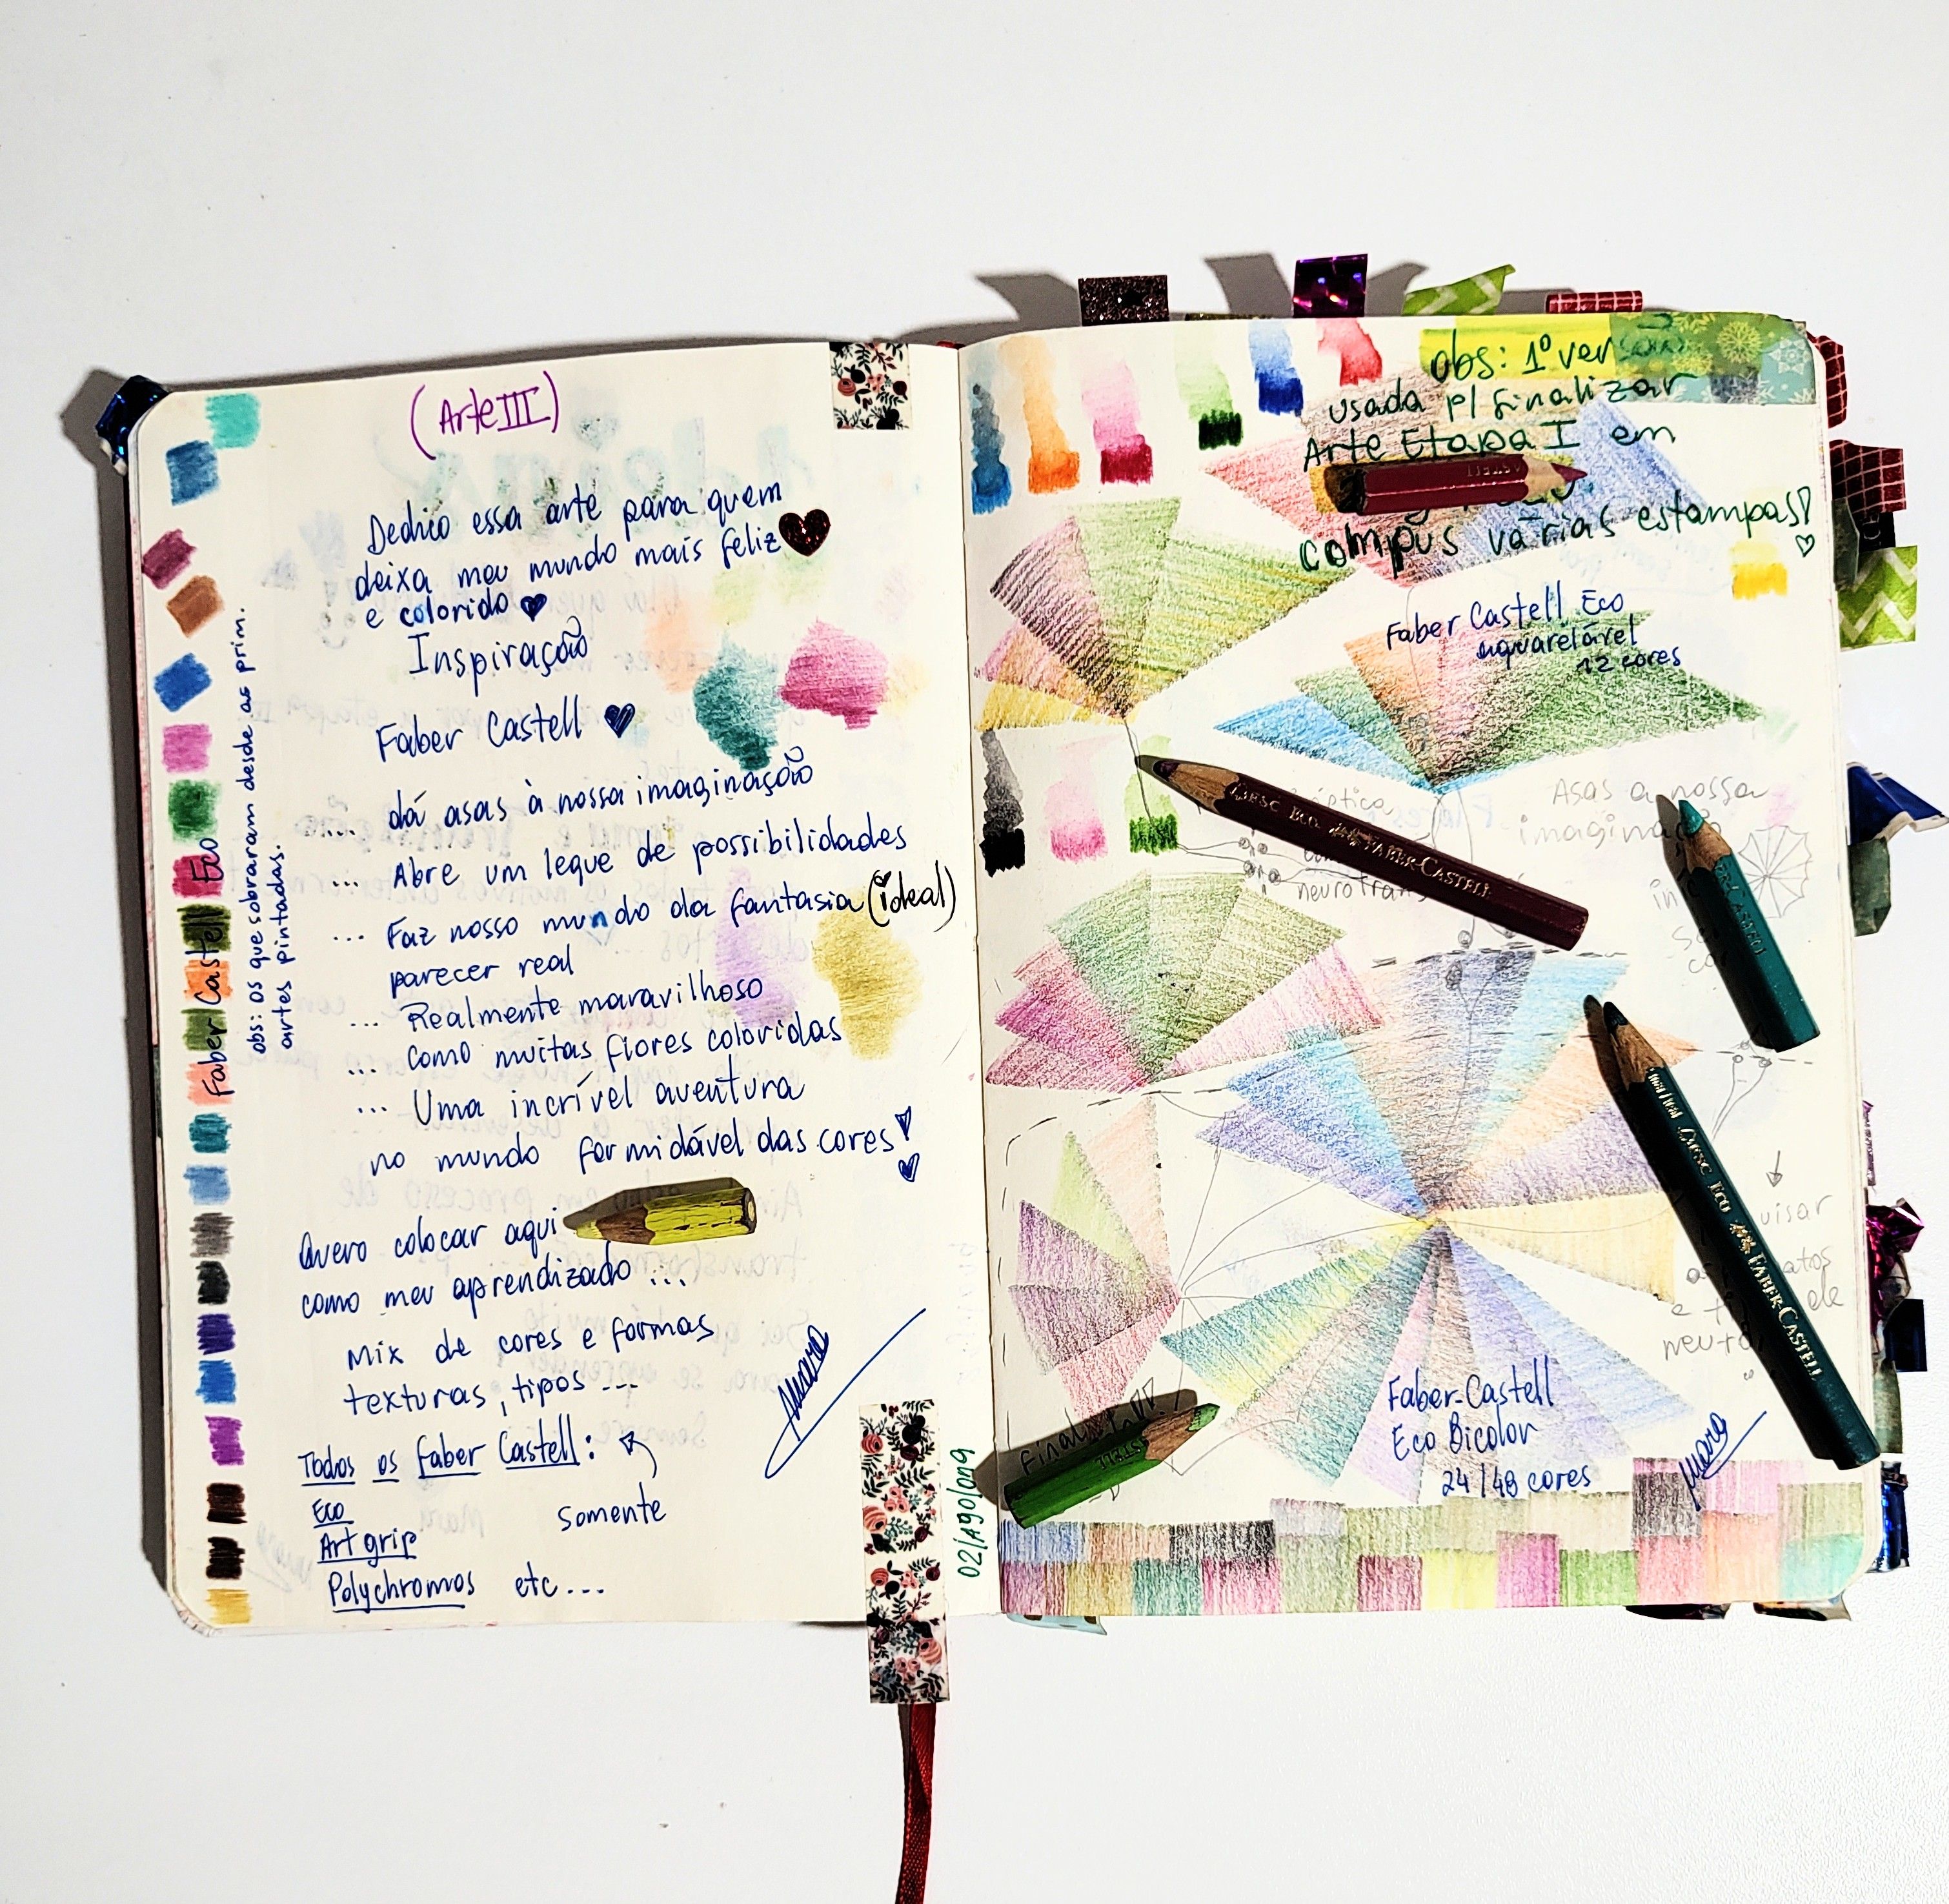 (Arte III)
Dedico essa arte para quem
deixa meu mundo mais feliz
e colorido
Inspiração
Faber Castell
... dá asas à nossa imaginação
... Abre um leque de possibilidades
... Faz nosso mundo da fantasia (ideal)
parecer real
... Realmente maravilhoso
... como muitas flores coloridas
... Uma incrível aventura
no mundo formidável das cores!
Quero colocar aqui
como meu aprendizado ...
Mix de cores e formas
texturas, tipos ...
Mara
Todos os Faber Castell:
Eco
Somente
Art grip
Polychromos etc...
Faber Castell Eco
obs: os que sobraram desde as prim.
artes pintadas.
obs: 1º versão
usada p/ finalizar
Arte Etapa I em
compus várias estampas!
Faber Castell Eco
aquarelável
12 cores
Asas a nossa
imaginação
DESC ECO FABER-CASTELL
DESC ECO FABER-CASTELL
Faber-Castell
Eco Bicolor
24/48 cores
Mara
02/Ago/2019